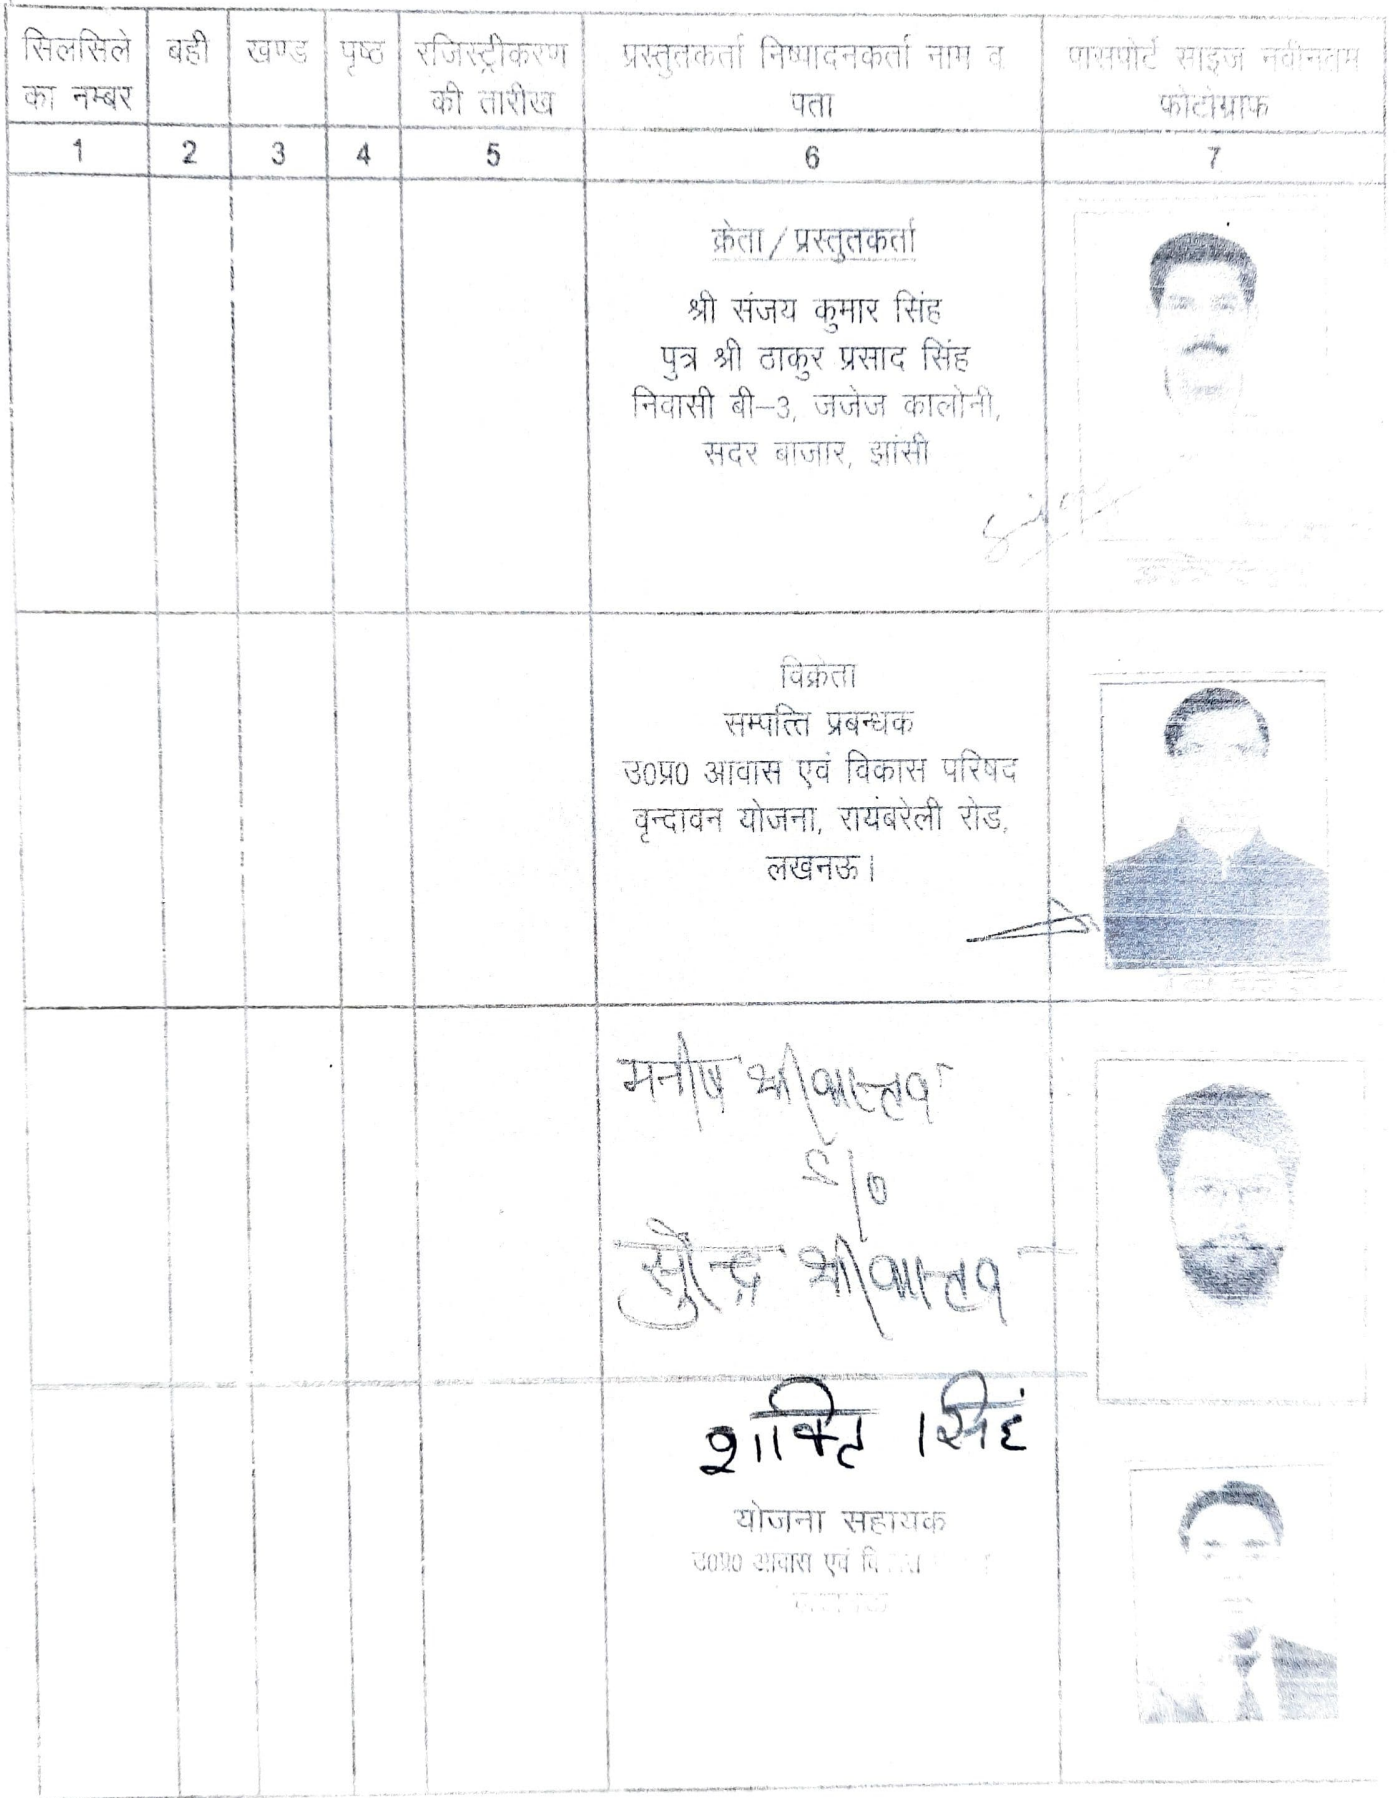 सिलसिले का नम्बर
बही
खण्ड
पृष्ठ
रजिस्ट्रीकरण की तारीख
प्रस्तुतकर्ता निष्पादनकर्ता नाम व पता
पासपोर्ट साइज नवीनतम फोटोग्राफ
1 2 3 4 5 6 7
क्रेता/प्रस्तुतकर्ता
श्री संजय कुमार सिंह
पुत्र श्री ठाकुर प्रसाद सिंह
निवासी बी–3, जजेज कालोनी,
सदर बाजार, झांसी
विक्रेता
सम्पत्ति प्रबन्धक
उ0प्र0 आवास एवं विकास परिषद
वृन्दावन योजना, रायबरेली रोड,
लखनऊ।
मनीष श्रीवास्तव
S/o
सुरेन्द्र श्रीवास्तव
शक्ति सिंह
योजना सहायक
उ0प्र0 आवास एवं